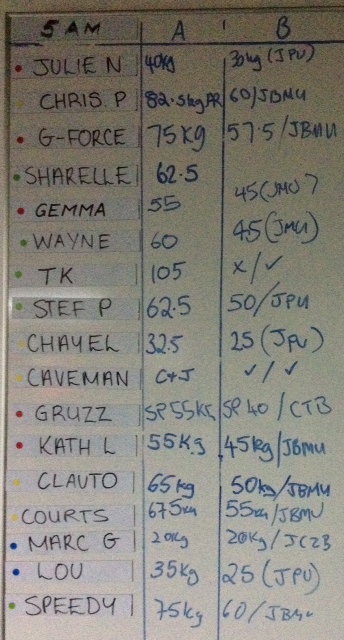 5 AM A B
JULIE N 40kg 30kg (JPU)
CHRIS P 82.5kg PR 60/JBMU
G-FORCE 75kg 57.5/JBMU
SHARELLE 62.5
GEMMA 55 45(JMU)
WAYNE 60 45(JMU)
TK 105 x/✓
STEF P 62.5 50/JPU
CHAYEL 32.5 25 (JPU)
CAVEMAN C+J ✓/✓
GRUZZ SP 55KG SP 40/CTB
KATH L 55Kg 45kg/JBMU
CLAUTO 65kg 50kg/JBMU
COURTS 67.5kg 55kg/JBMU
MARC G 20kg 20kg/JC2B
LOU 35kg 25 (JPU)
SPEEDY 75kg 60/JBMU